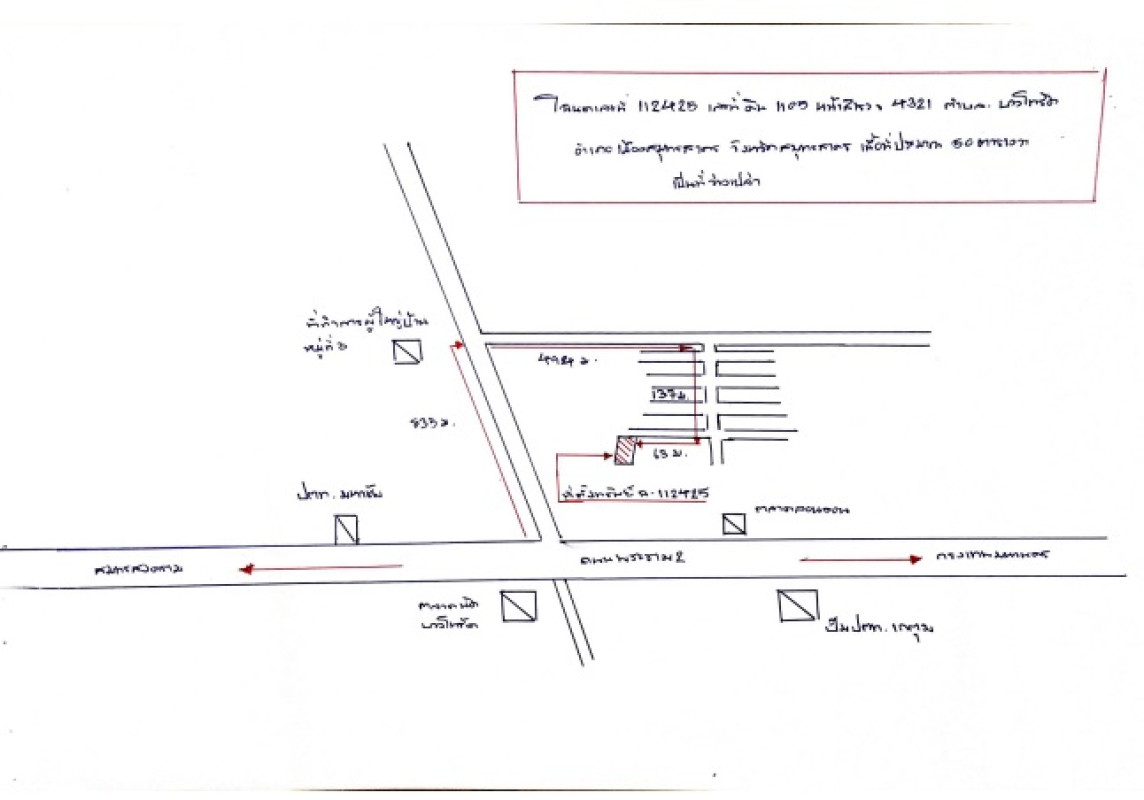 โฉนดเลขที่ 112425 เลขที่ดิน 1105 หน้าสำรวจ 4321 ตำบล. บางโทรัด
อำเภอเมืองสมุทรสาคร จังหวัดสมุทรสาคร เนื้อที่ประมาณ 50 ตารางวา
เป็นที่ว่างเปล่า
ที่ทำการผู้ใหญ่บ้าน
หมู่ที่
ม.
137ม.
833 ม.
63 ม.
ที่ตั้งทรัพย์ ฉ.112425
ปตท. มหาชัย
ถนนพระราม2
กรุงเทพมหานคร
สมุทรสงคราม
ตลาดนัด
บางโทรัด
ปั๊มปตท.